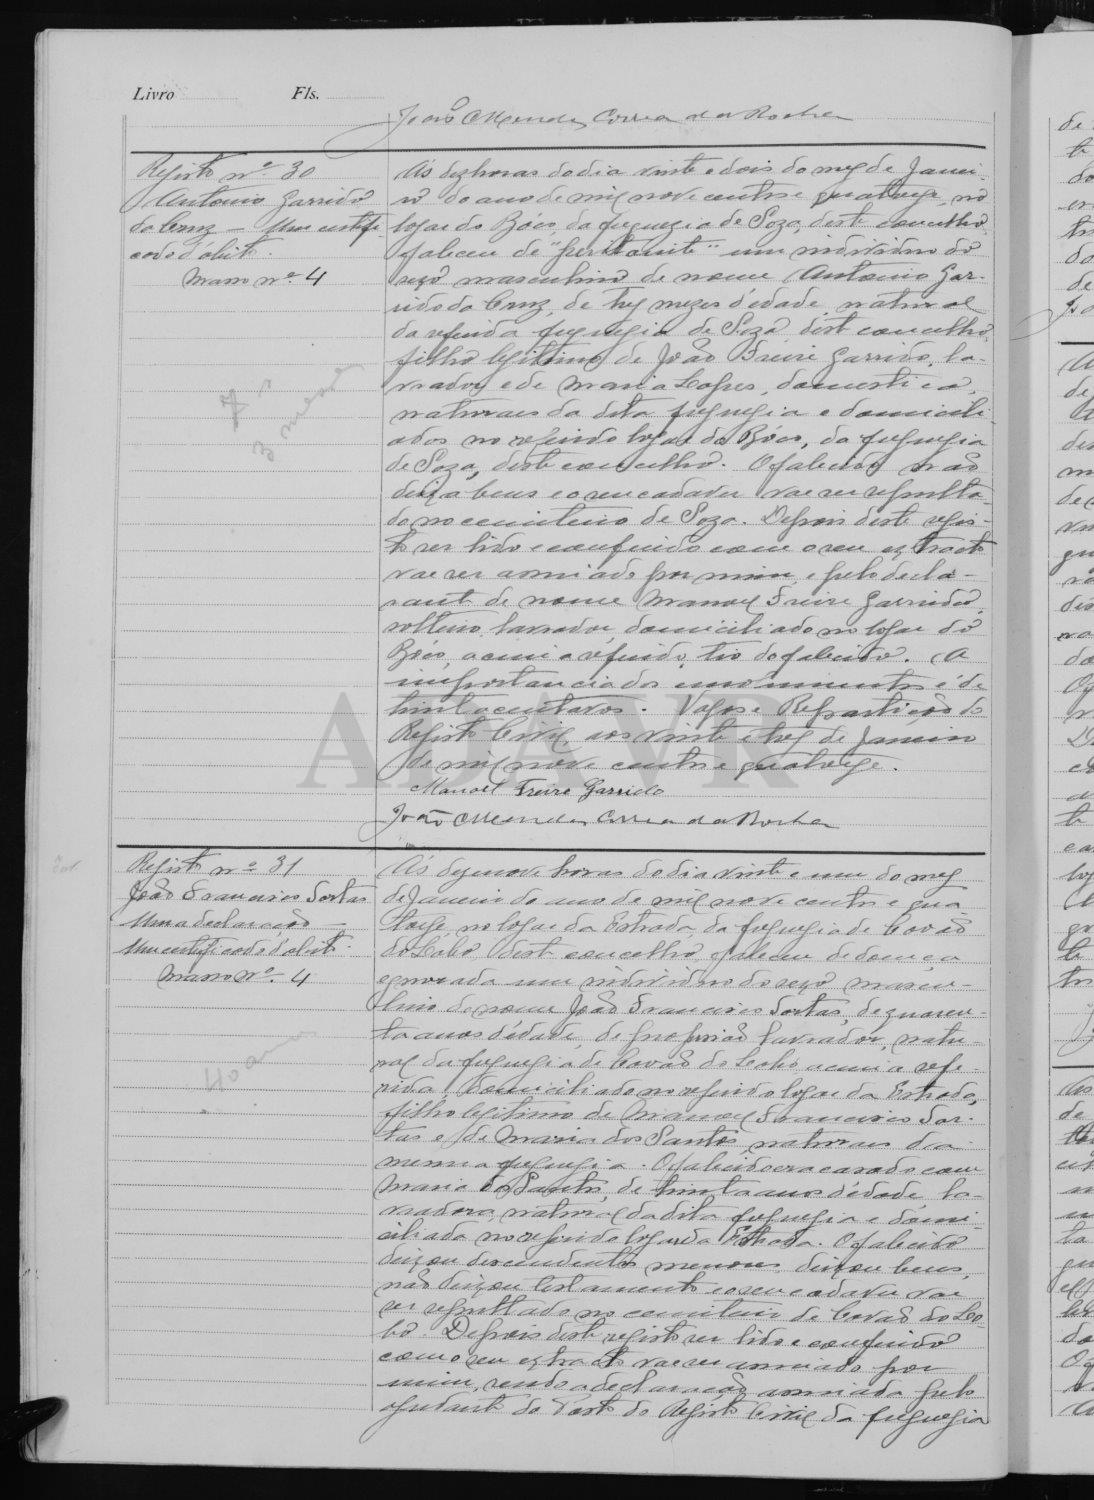 Livro Fls.
João Mendes Correa da Rocha
Registo nº 30
Antonio Garrido
da Cruz – Um certifi
cado d'obito.
Masso nº 4
7
3 meses
Ás dez horas do dia vinte e dois do mez de Janei-
ro do ano de mil nove centos e quatorze, no
logar do Bôco, da freguezia de Soza, deste concelho,
faleceu de "peritonite" um individuo do
sexo masculino de nome Antonio Gar-
rido da Cruz, de trez mezes d'edade, natural
da referida freguezia de Soza deste concelho,
filho legitimo de João Freire Garrido, la-
vrador, e de Maria Lopes, domestica,
naturaes da dita freguezia e domicili-
ados no referido logar do Bôco, da freguezia
de Soza, deste concelho. O falecido não
deixa bens e o seu cadaver vae ser sepulta-
do no cemiterio de Soza. Depois deste regis-
to ser lido e conferido com o seu extracto
vae ser assinado por mim e pelo decla-
rante de nome Manoel Freire Garrido,
solteiro, lavrador, domiciliado no logar do
Bôco, acima referido, tio do falecido. A
importancia dos emolumentos é de
trinta centavos. Vagos e Repartição do
Registo Civil, aos vinte e trez de Janeiro
de mil nove centos e quatorze.
Manoel Freire Garrido
João Mendes Correa da Rocha
ADAVR
Registo nº 31
João Francisco Sortas
Uma declaração –
Um certificado d'obito.
Masso Nº. 4
40 anos
Ás dezenove horas do dia vinte e um do mez
de Janeiro do ano de mil nove centos e qua
torze, no logar da Estrada, da freguezia de Covão
do Lobo, deste concelho, faleceu de doença
ignorada um individuo do sexo mascu-
lino de nome João Francisco Sortas, de quaren-
ta anos d'edade, de profissão lavrador, natu-
ral da freguezia de Covão do Lobo acima refe-
rida, domiciliado no referido logar da Estrada,
filho legitimo de Manoel Francisco Sor-
tas e de Maria dos Santos, naturaes da
mesma freguezia. O falecido era casado com
Maria dos Santos, de trinta anos d'edade, la-
vradora, natural da dita freguezia e domi-
ciliada no referido logar da Estrada. O falecido
deixou descendentes menores, deixou bens,
não deixou testamento e o seu cadaver vae
ser sepultado no cemiterio de Covão do Lo-
bo. Depois deste registo ser lido e conferido
com o seu extracto vae ser assinado por
mim, sendo a declaração assinada pelo
ajudante do Posto do Registo Civil da freguezia